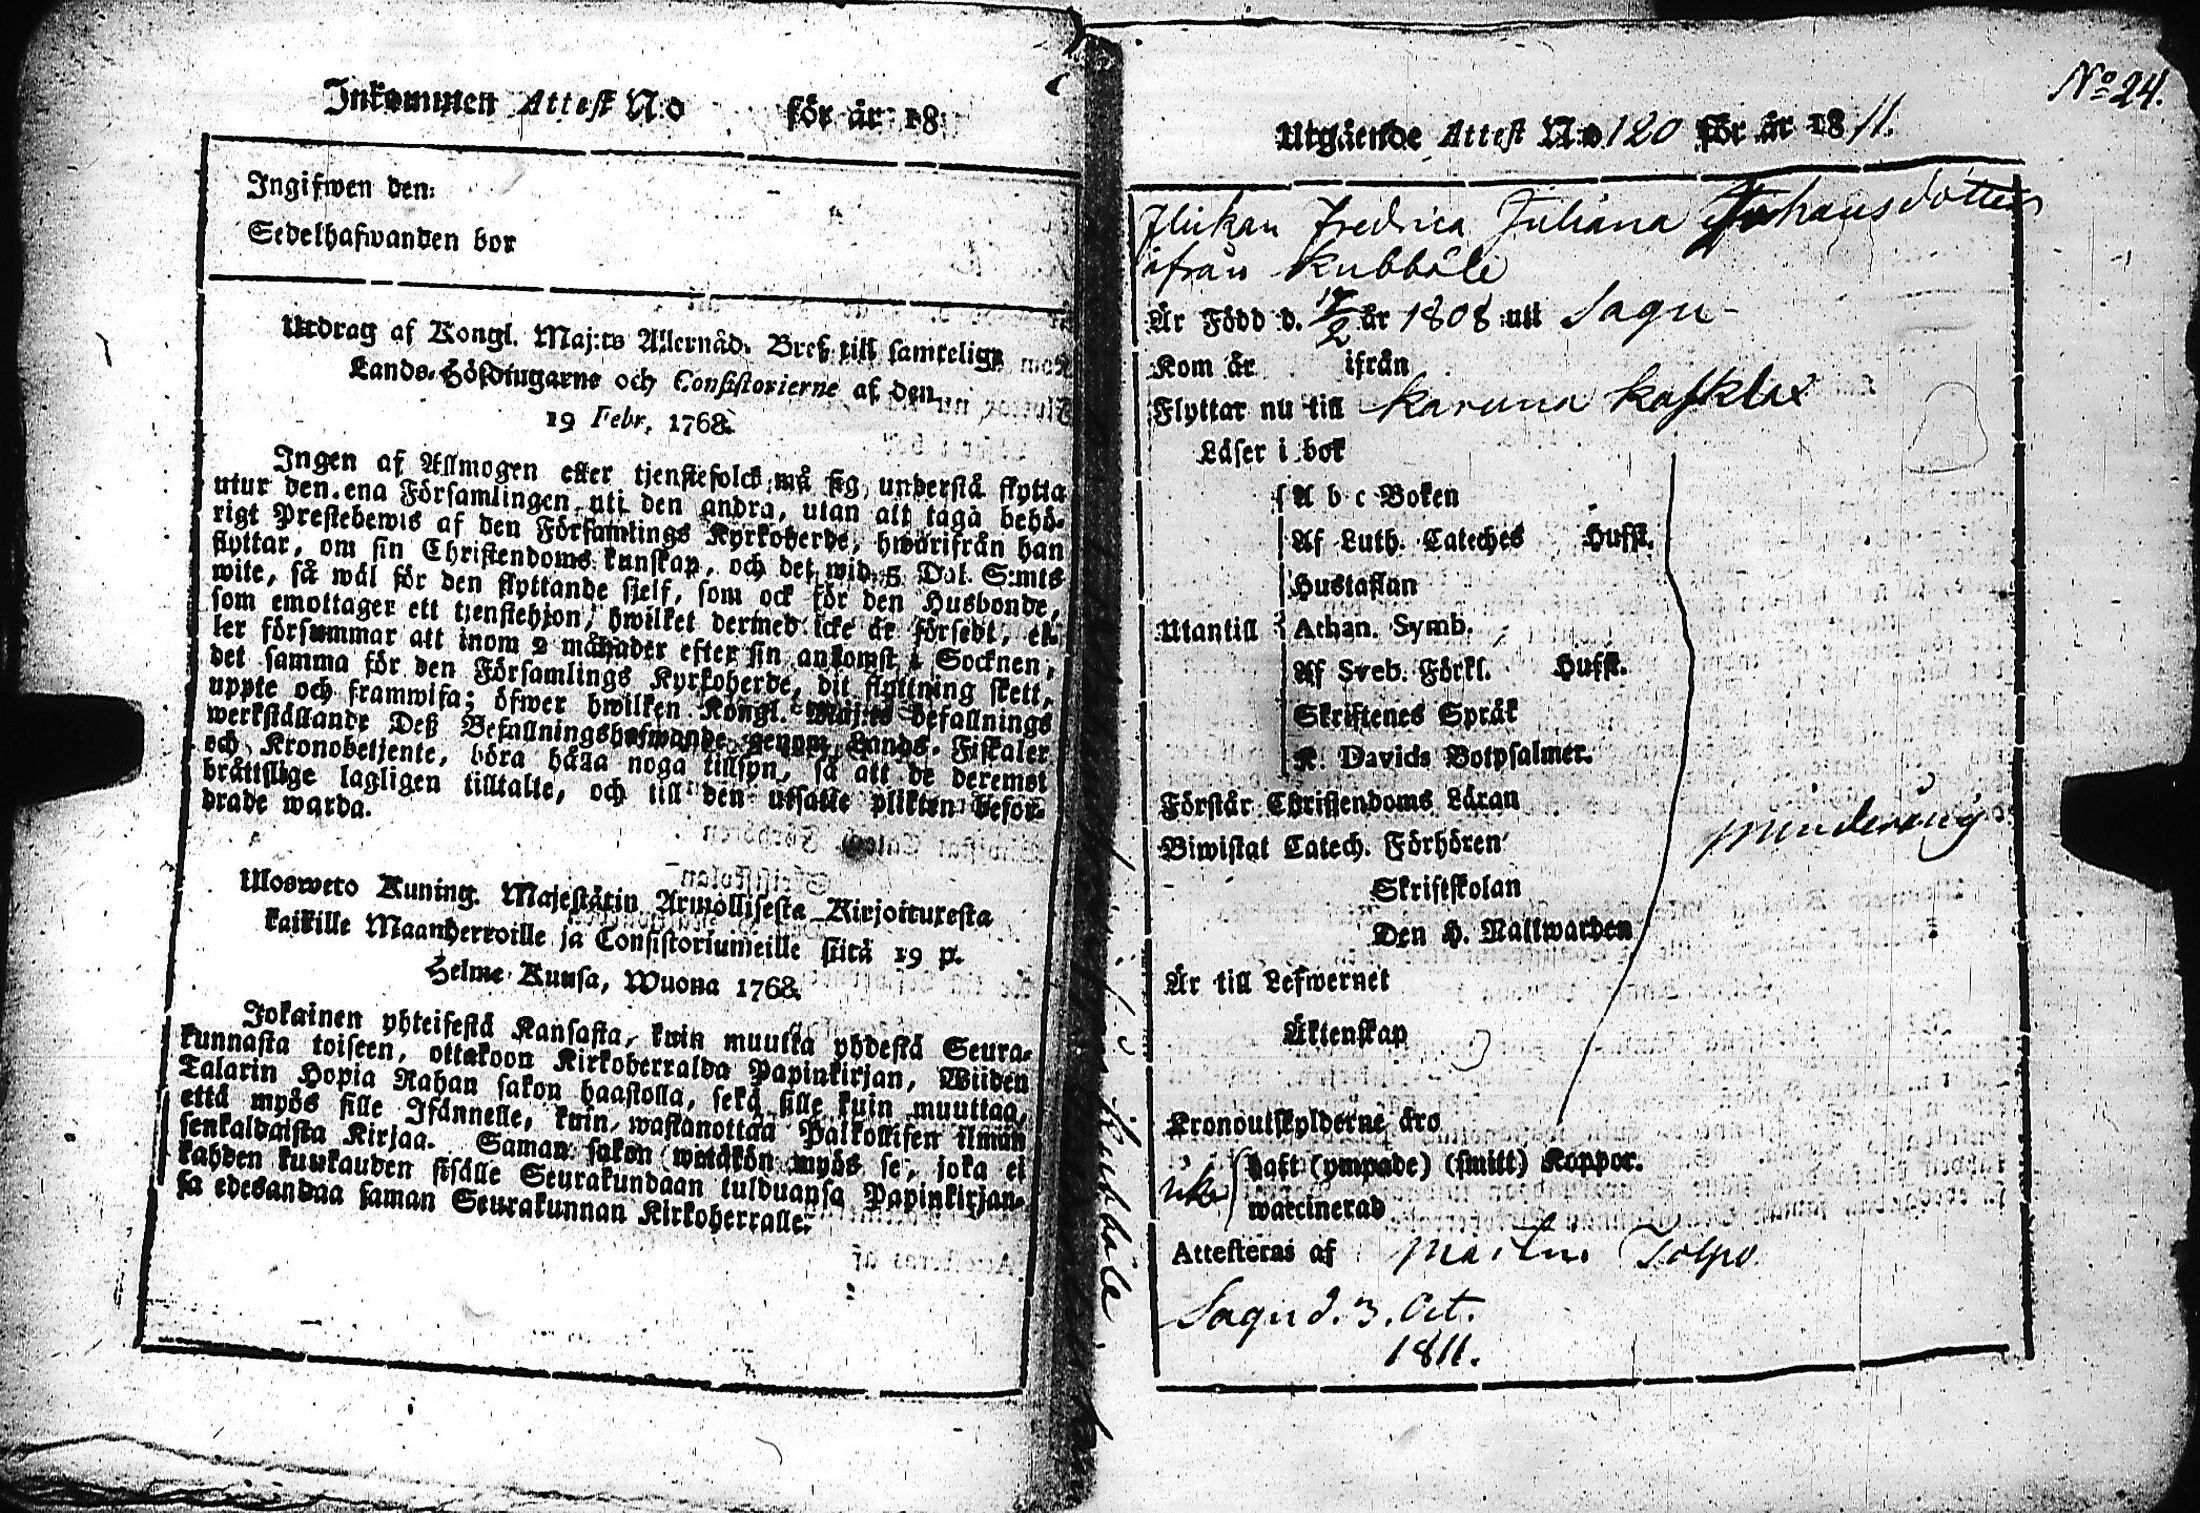 Inkommen Attest N:o för år 18
Ingifwen den:
Sedelhafwanden bor
Utdrag af Kongl. Maj:ts Allernåd. Bref till samtelige
Lands-Höfdingarne och Consistorierne af den
19 Febr. 1768.
Ingen af Allmogen eller tjenstefolck må sig understå flytta
utur den ena Församlingen uti den andra, utan att taga behö-
rigt Prestebewis af den Församlings Kyrkoherde, hwarifrån han
flyttar, om sin Christendoms kunskap, och det wid 5 Dal. S:mts
wite, så wäl för den flyttande sielf, som ock för den Husbonde,
som emottager ett tjenstehjon, hwilket dermed icke är försedt, el-
ler försummar att inom 2 månader efter sin ankomst i Socknen,
det samma för den Församlings Kyrkoherde, dit flyttning skett,
uppte och framwisa; öfwer hwilken Kongl. Maj:ts befallnings
werkställande Deß Befallningshafwande genom Lands-Fiskaler
och Kronobetjente, böra hålla noga tillsyn, så att de deremot
bråttslige lagligen tilltalte, och till den utsatte plikten befor-
drade warda.
Ulosweto Kuning. Majestätin Armollisesta Kirjoituxesta
kaikille Maanherroille ja Consistoriumeille siitä 19 p.
Helme Kuusa, Wuona 1768.
Jokainen yhteisestä Kansasta, kuin muutta yhdestä Seura-
kunnasta toiseen, ottakoon Kirkoherralda Papinkirjan, Wiiden
Talarin Hopia Rahan sakon haastolla, sekä sille kuin muuttaa,
että myös sille Isännelle, kuin wastanottaa Palkollisen ilman
senkaldaista Kirjaa. Saman sakon wetäkön myös se, joka ei
kahden kuukauden sisälle Seurakundaan tulduansa Papinkirjan-
sa edesandaa saman Seurakunnan Kirkoherralle.
No 24.
Utgående Attest N:o 120 för år 1811.
Flickan Fredrica Juliana Johansdotter
ifrån Kubböle
Är Född d. /2 år 1808 uti Sagu
Kom år ifrån
Flyttar nu till Karuna Kafklax
Läser i bok
A b c Boken
Af Luth. Cateches Hufst.
Hustaflan
Utantill Athan. Symb.
Af Sveb. Förkl. Hufst.
Skriftenes Språk
K. Davids Botpsalmer.
Förstår Christendoms Läran
minderårig
Biwistat Catech. Förhören
Skriftskolan
Den H. Nattwarden
Är till Lefwernet
Äktenskap
Kronoutskylderne äro
haft (ympade) (smitt) Koppor.
icke
waccinerad
Attesteras af Martin Tolpo
Sagu d. 3. Oct.
1811.
Kubböle